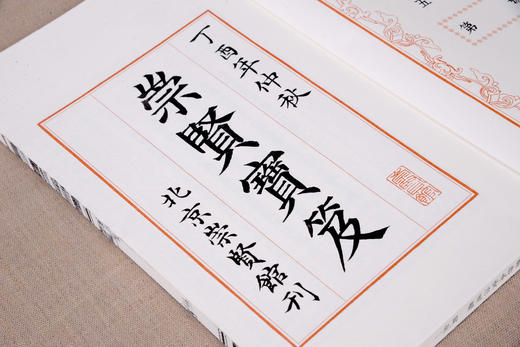 丁酉年仲秋
崇賢寶笈
北京崇賢館刊
五
第